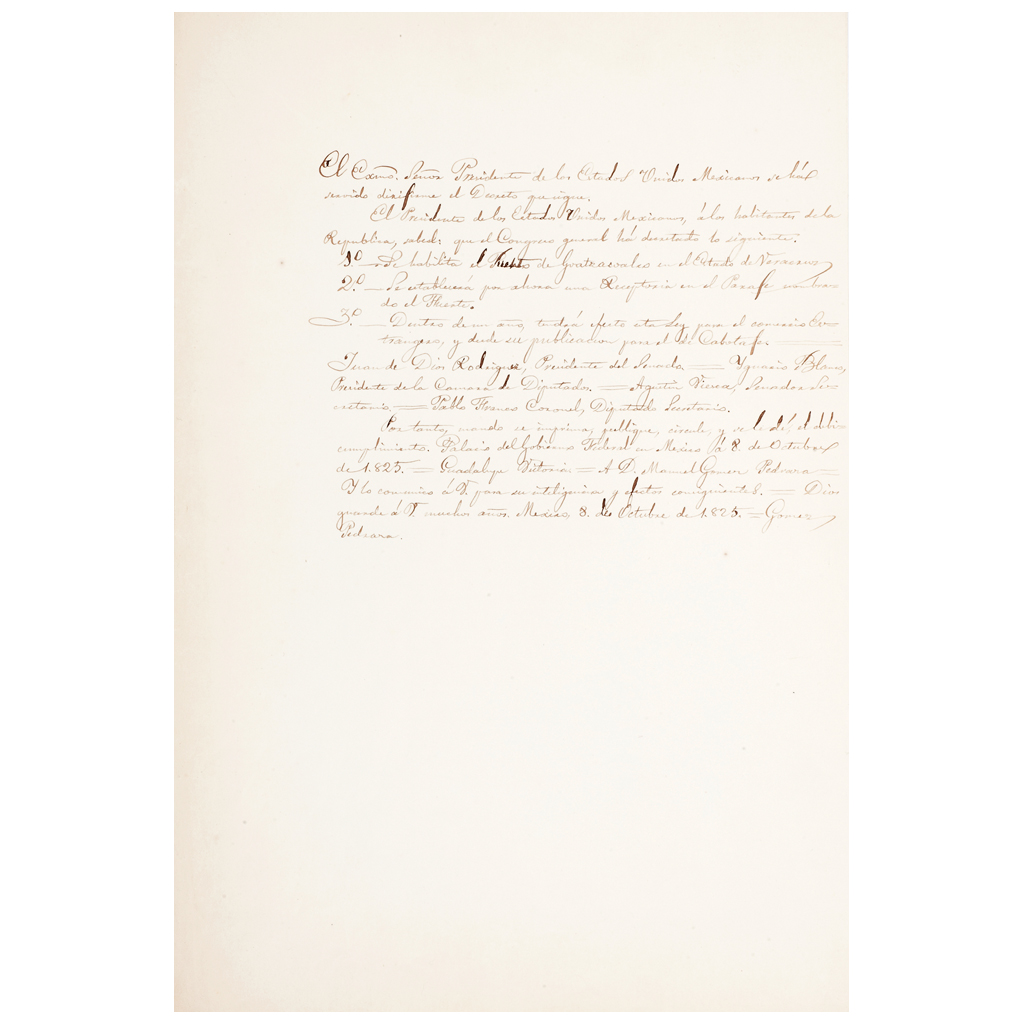 El Exmo. Señor Presidente de los Estados Unidos Mexicanos se há
servido dirijirme el Decreto que sigue.
El Presidente de los Estados Unidos Mexicanos, á los habitantes de la
Republica, sabed: que el Congreso general há decretado lo siguiente.
1.º — Se habilita el Puerto de Goatzacoalcos en el Estado de Veracruz
2.º — Se establecerá por ahora una Receptoria en el Parage nombra-
do el Fuerte.
3.º — Dentro de un año, tendrá efecto esta Ley para el comercio Ex-
trangero, y desde su publicacion para el de Cabotage.
Juan de Dios Rodriguez, Presidente del Senado. = Ygnacio Blanco,
Presidente de la Camara de Diputados. = Agustin Viesca, Senador Se-
cretario. = Pablo Franco Coronel, Diputado Secretario.
Por tanto, mando se imprima, publique, circule, y se le dé el debido
cumplimiento. Palacio del Gobierno Federal en Mexico á 8. de Octubre
de 1.825. = Guadalupe Victoria = A D. Manuel Gomez Pedraza =
Y lo comunico á V. para su inteligencia y efectos consiguientes. = Dios
guarde á V. muchos años. Mexico 8. de Octubre de 1.825. = Gomez
Pedraza.